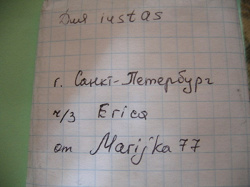 Для iustas
г. Санкт-Петербург
ч/з Erica
от Marijka 77